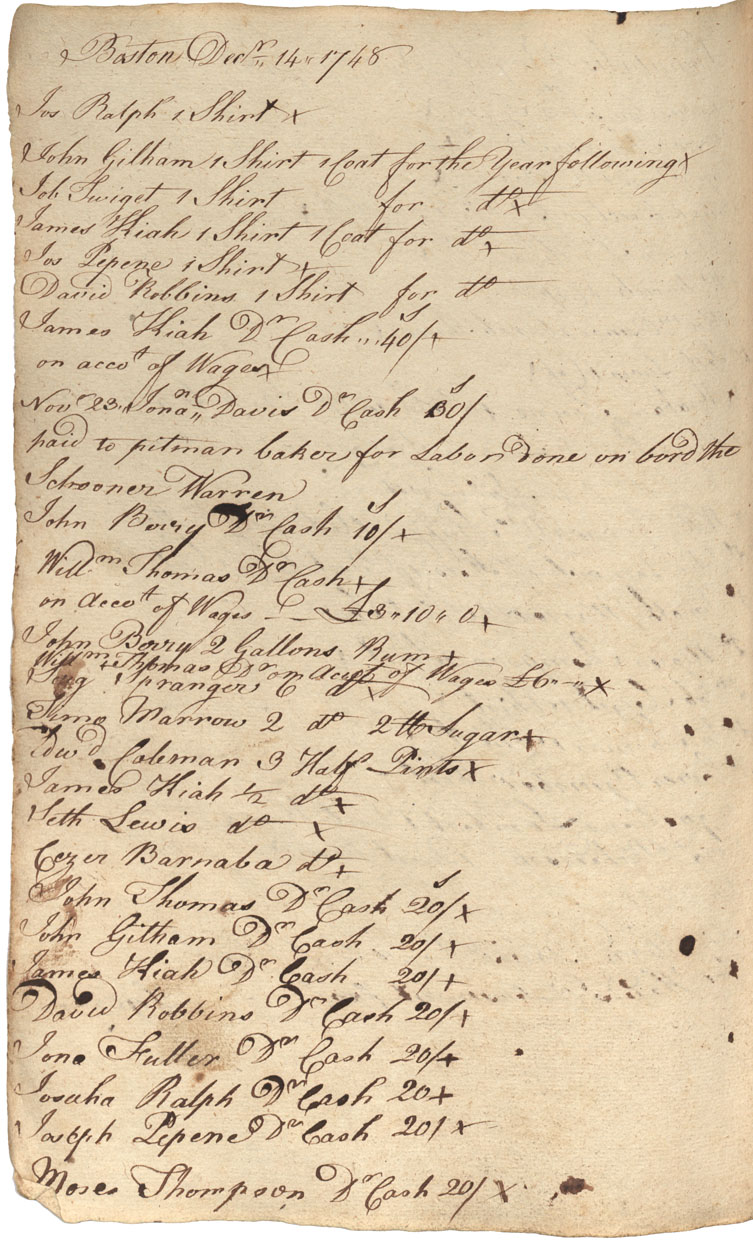 Boston Decr. 14 1748
Jos Ralph 1 Shirt x
John Gilham 1 Shirt 1 Coat for the Year following x
Job Twiget 1 Shirt for do x
James Kiah 1 Shirt 1 Coat for do x
Jos Pepene 1 Shirt x
David Robbins 1 Shirt for do
James Kiah Dr Cash 40/ x
on accot of Wages x
Novr 23 Jona Davis Dr Cash 30/
paid to pitman baker for Labor done on bord the
Schooner Warren
John Bowry Dr Cash 10/ x
Willm Thomas Dr Cash x
on Accot of Wages £3 10 0 x
John Bowry 2 Gallons Rum x
Willm Thomas Dr on Accot of Wages £6 x
Spranger 6 do x
Simo Marrow 2 do 2 lb Sugar x
Edwd Coleman 3 Half Pints x
James Kiah 1/2 do x
Seth Lewis do x
Cezer Barnaba do x
John Thomas Dr Cash 20/ x
John Gilham Dr Cash 20/ x
James Kiah Dr Cash 20/ x
David Robbins Dr Cash 20/ x
Jona Fuller Dr Cash 20/ x
Josuha Ralph Dr Cash 20 x
Joseph Pepene Dr Cash 20/ x
Moses Thompson Dr Cash 20/ x